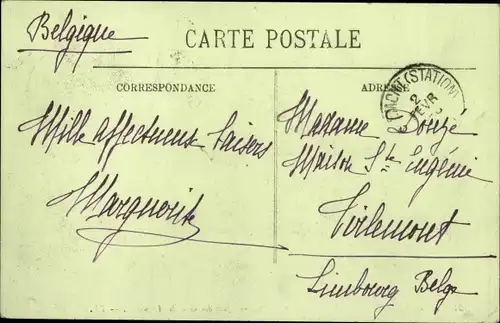 Belgique
CARTE POSTALE
CORRESPONDANCE
Mille affectueux baisers
Marguerite
ADRESSE
(STATION)
2
FEVR
Madame
Maison Ste Eugénie
Tirlemont
Limbourg Belge